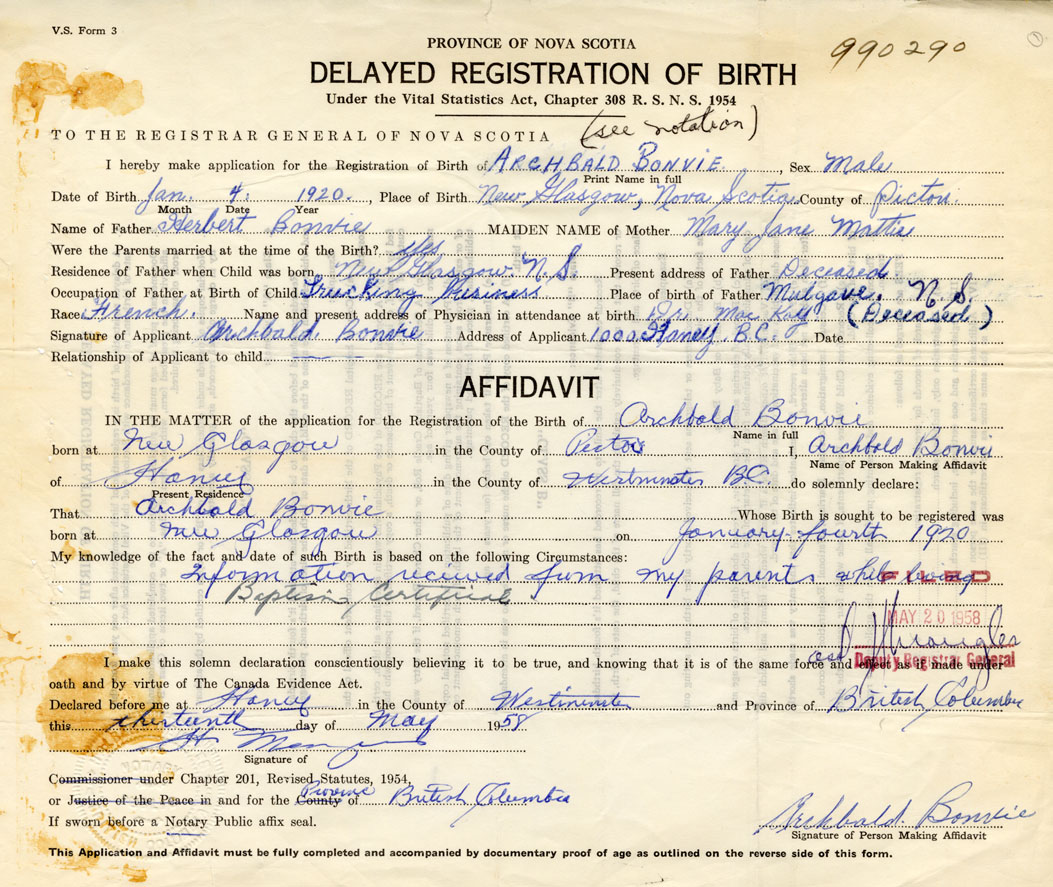 V.S. Form 3
PROVINCE OF NOVA SCOTIA
990290
DELAYED REGISTRATION OF BIRTH
Under the Vital Statistics Act, Chapter 308 R. S. N. S. 1954
TO THE REGISTRAR GENERAL OF NOVA SCOTIA (see notation)
I hereby make application for the Registration of Birth of ARCHBALD BONVIE, Sex Male
Print Name in full
Date of Birth Jan. 4. 1920., Place of Birth New Glasgow, Nova Scotia County of Picton.
Month Date Year
Name of Father Herbert Bonvie MAIDEN NAME of Mother Mary Jane Mattie
Were the Parents married at the time of the Birth? Yes
Residence of Father when Child was born New Glasgow N.S. Present address of Father Deceased
Occupation of Father at Birth of Child Trucking business Place of birth of Father Mulgave. N.S.
Race French. Name and present address of Physician in attendance at birth Dr. Mac Kay (Deceased.)
Signature of Applicant Archbald Bonvie Address of Applicant 1000 Haney. B.C. Date
Relationship of Applicant to child
AFFIDAVIT
IN THE MATTER of the application for the Registration of the Birth of Archbald Bonvie
Name in full
born at New Glasgow in the County of Pictou I, Archbold Bonvie
Name of Person Making Affidavit
of Haney in the County of Westminster B.C. do solemnly declare:
Present Residence
That Archbald Bonvie Whose Birth is sought to be registered was
born at New Glasgow on January fourth 1920
My knowledge of the fact and date of such Birth is based on the following Circumstances:
Information recieved from my parents while living
FILED
Baptism Certificate
MAY 20 1958
I make this solemn declaration conscientiously believing it to be true, and knowing that it is of the same force and effect as if made under
Deputy Registrar General
oath and by virtue of The Canada Evidence Act.
Declared before me at Haney in the County of Westminster and Province of British Columbia
this thirteenth day of May 1958
Signature of
Commissioner under Chapter 201, Revised Statutes, 1954,
or Justice of the Peace in and for the County Province of British Columbia
If sworn before a Notary Public affix seal.
Archbald. Bonvie
Signature of Person Making Affidavit
This Application and Affidavit must be fully completed and accompanied by documentary proof of age as outlined on the reverse side of this form.